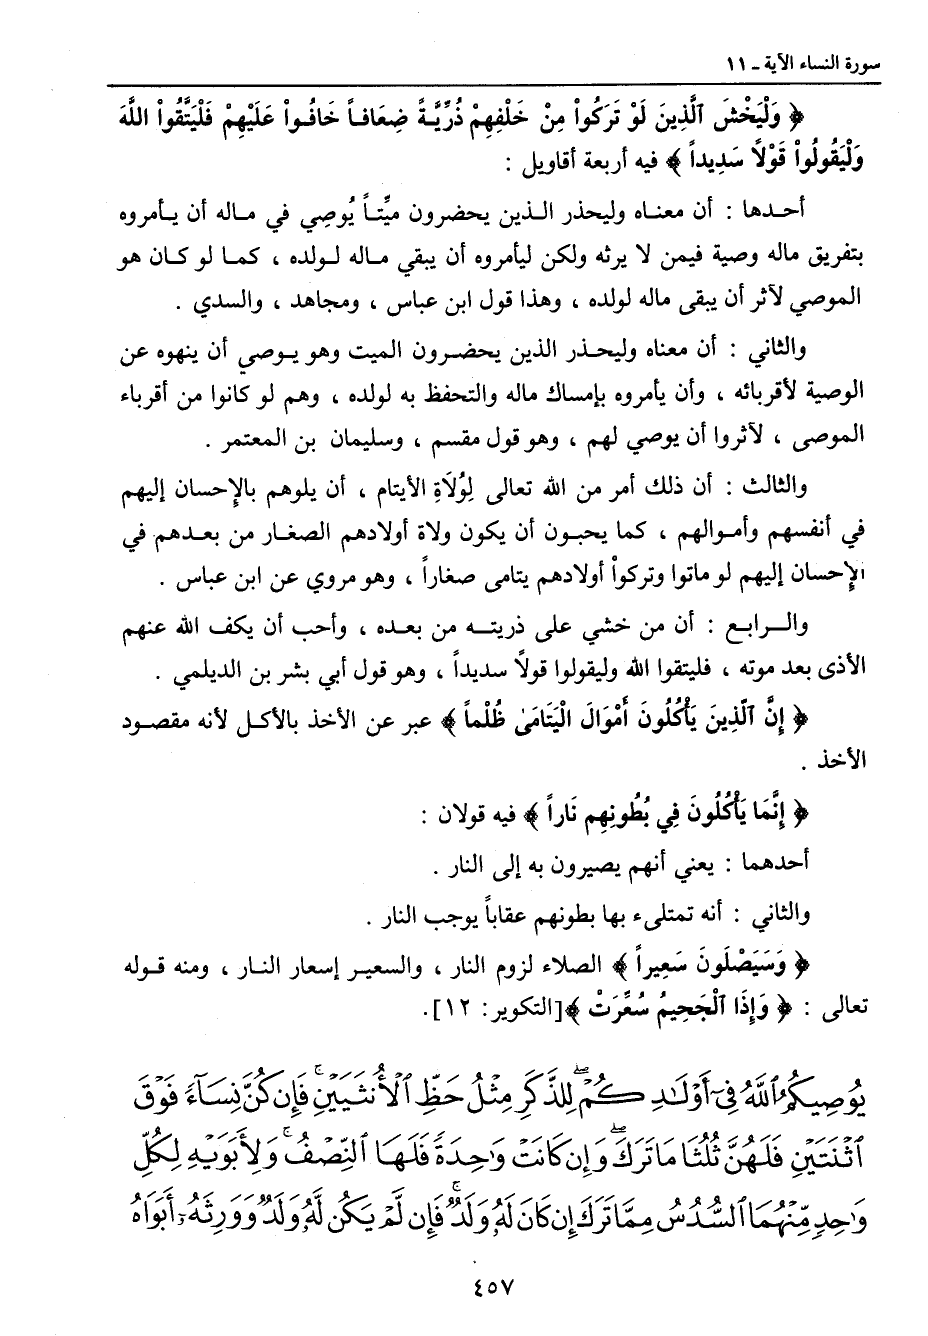 سورة النساء الآية ـ ١١
﴿ وَلْيَخْشَ ٱلَّذِينَ لَوْ تَرَكُواْ مِنْ خَلْفِهِمْ ذُرِّيَّةً ضِعَافاً خَافُواْ عَلَيْهِمْ فَلْيَتَّقُواْ اللَّهَ
وَلْيَقُولُواْ قَوْلاً سَدِيداً ﴾ فيه أربعة أقاويل :
أحدها : أن معناه وليحذر الذين يحضرون ميِّتاً يُوصِي في ماله أن يأمروه
بتفريق ماله وصية فيمن لا يرثه ولكن ليأمروه أن يبقي ماله لولده ، كما لو كان هو
الموصي لآثر أن يبقى ماله لولده ، وهذا قول ابن عباس ، ومجاهد ، والسدي .
والثاني : أن معناه وليحذر الذين يحضرون الميت وهو يوصي أن ينهوه عن
الوصية لأقربائه ، وأن يأمروه بإمساك ماله والتحفظ به لولده ، وهم لو كانوا من أقرباء
الموصى ، لآثروا أن يوصي لهم ، وهو قول مقسم ، وسليمان بن المعتمر .
والثالث : أن ذلك أمر من الله تعالى لِوُلَاةِ الأيتام ، أن يلوهم بالإحسان إليهم
في أنفسهم وأموالهم ، كما يحبون أن يكون ولاة أولادهم الصغار من بعدهم في
الإحسان إليهم لو ماتوا وتركواْ أولادهم يتامى صغاراً ، وهو مروي عن ابن عباس .
والرابع : أن من خشي على ذريته من بعده ، وأحب أن يكف الله عنهم
الأذى بعد موته ، فليتقوا الله وليقولوا قولاً سديداً ، وهو قول أبي بشر بن الديلمي .
﴿ إِنَّ ٱلَّذِينَ يَأْكُلُونَ أَمْوَالَ الْيَتَامَىٰ ظُلْماً ﴾ عبر عن الأخذ بالأكل لأنه مقصود
الأخذ .
﴿ إِنَّمَا يَأْكُلُونَ فِي بُطُونِهِم نَاراً ﴾ فيه قولان :
أحدهما : يعني أنهم يصيرون به إلى النار .
والثاني : أنه تمتلىء بها بطونهم عقاباً يوجب النار .
﴿ وَسَيَصْلَونَ سَعِيراً ﴾ الصلاء لزوم النار ، والسعير إسعار النار ، ومنه قوله
تعالى : ﴿ وَإِذَا ٱلْجَحِيمُ سُعِّرَتْ ﴾[التكوير: ١٢].
يُوصِيكُمُ ٱللَّهُ فِىٓ أَوْلَٰدِكُمْ ۖ لِلذَّكَرِ مِثْلُ حَظِّ ٱلْأُنثَيَيْنِ ۚ فَإِن كُنَّ نِسَآءً فَوْقَ
ٱثْنَتَيْنِ فَلَهُنَّ ثُلُثَا مَا تَرَكَ ۖ وَإِن كَانَتْ وَٰحِدَةً فَلَهَا ٱلنِّصْفُ ۚ وَلِأَبَوَيْهِ لِكُلِّ
وَٰحِدٍ مِّنْهُمَا ٱلسُّدُسُ مِمَّا تَرَكَ إِن كَانَ لَهُۥ وَلَدٌ ۚ فَإِن لَّمْ يَكُن لَّهُۥ وَلَدٌ وَوَرِثَهُۥٓ أَبَوَاهُ
٤٥٧